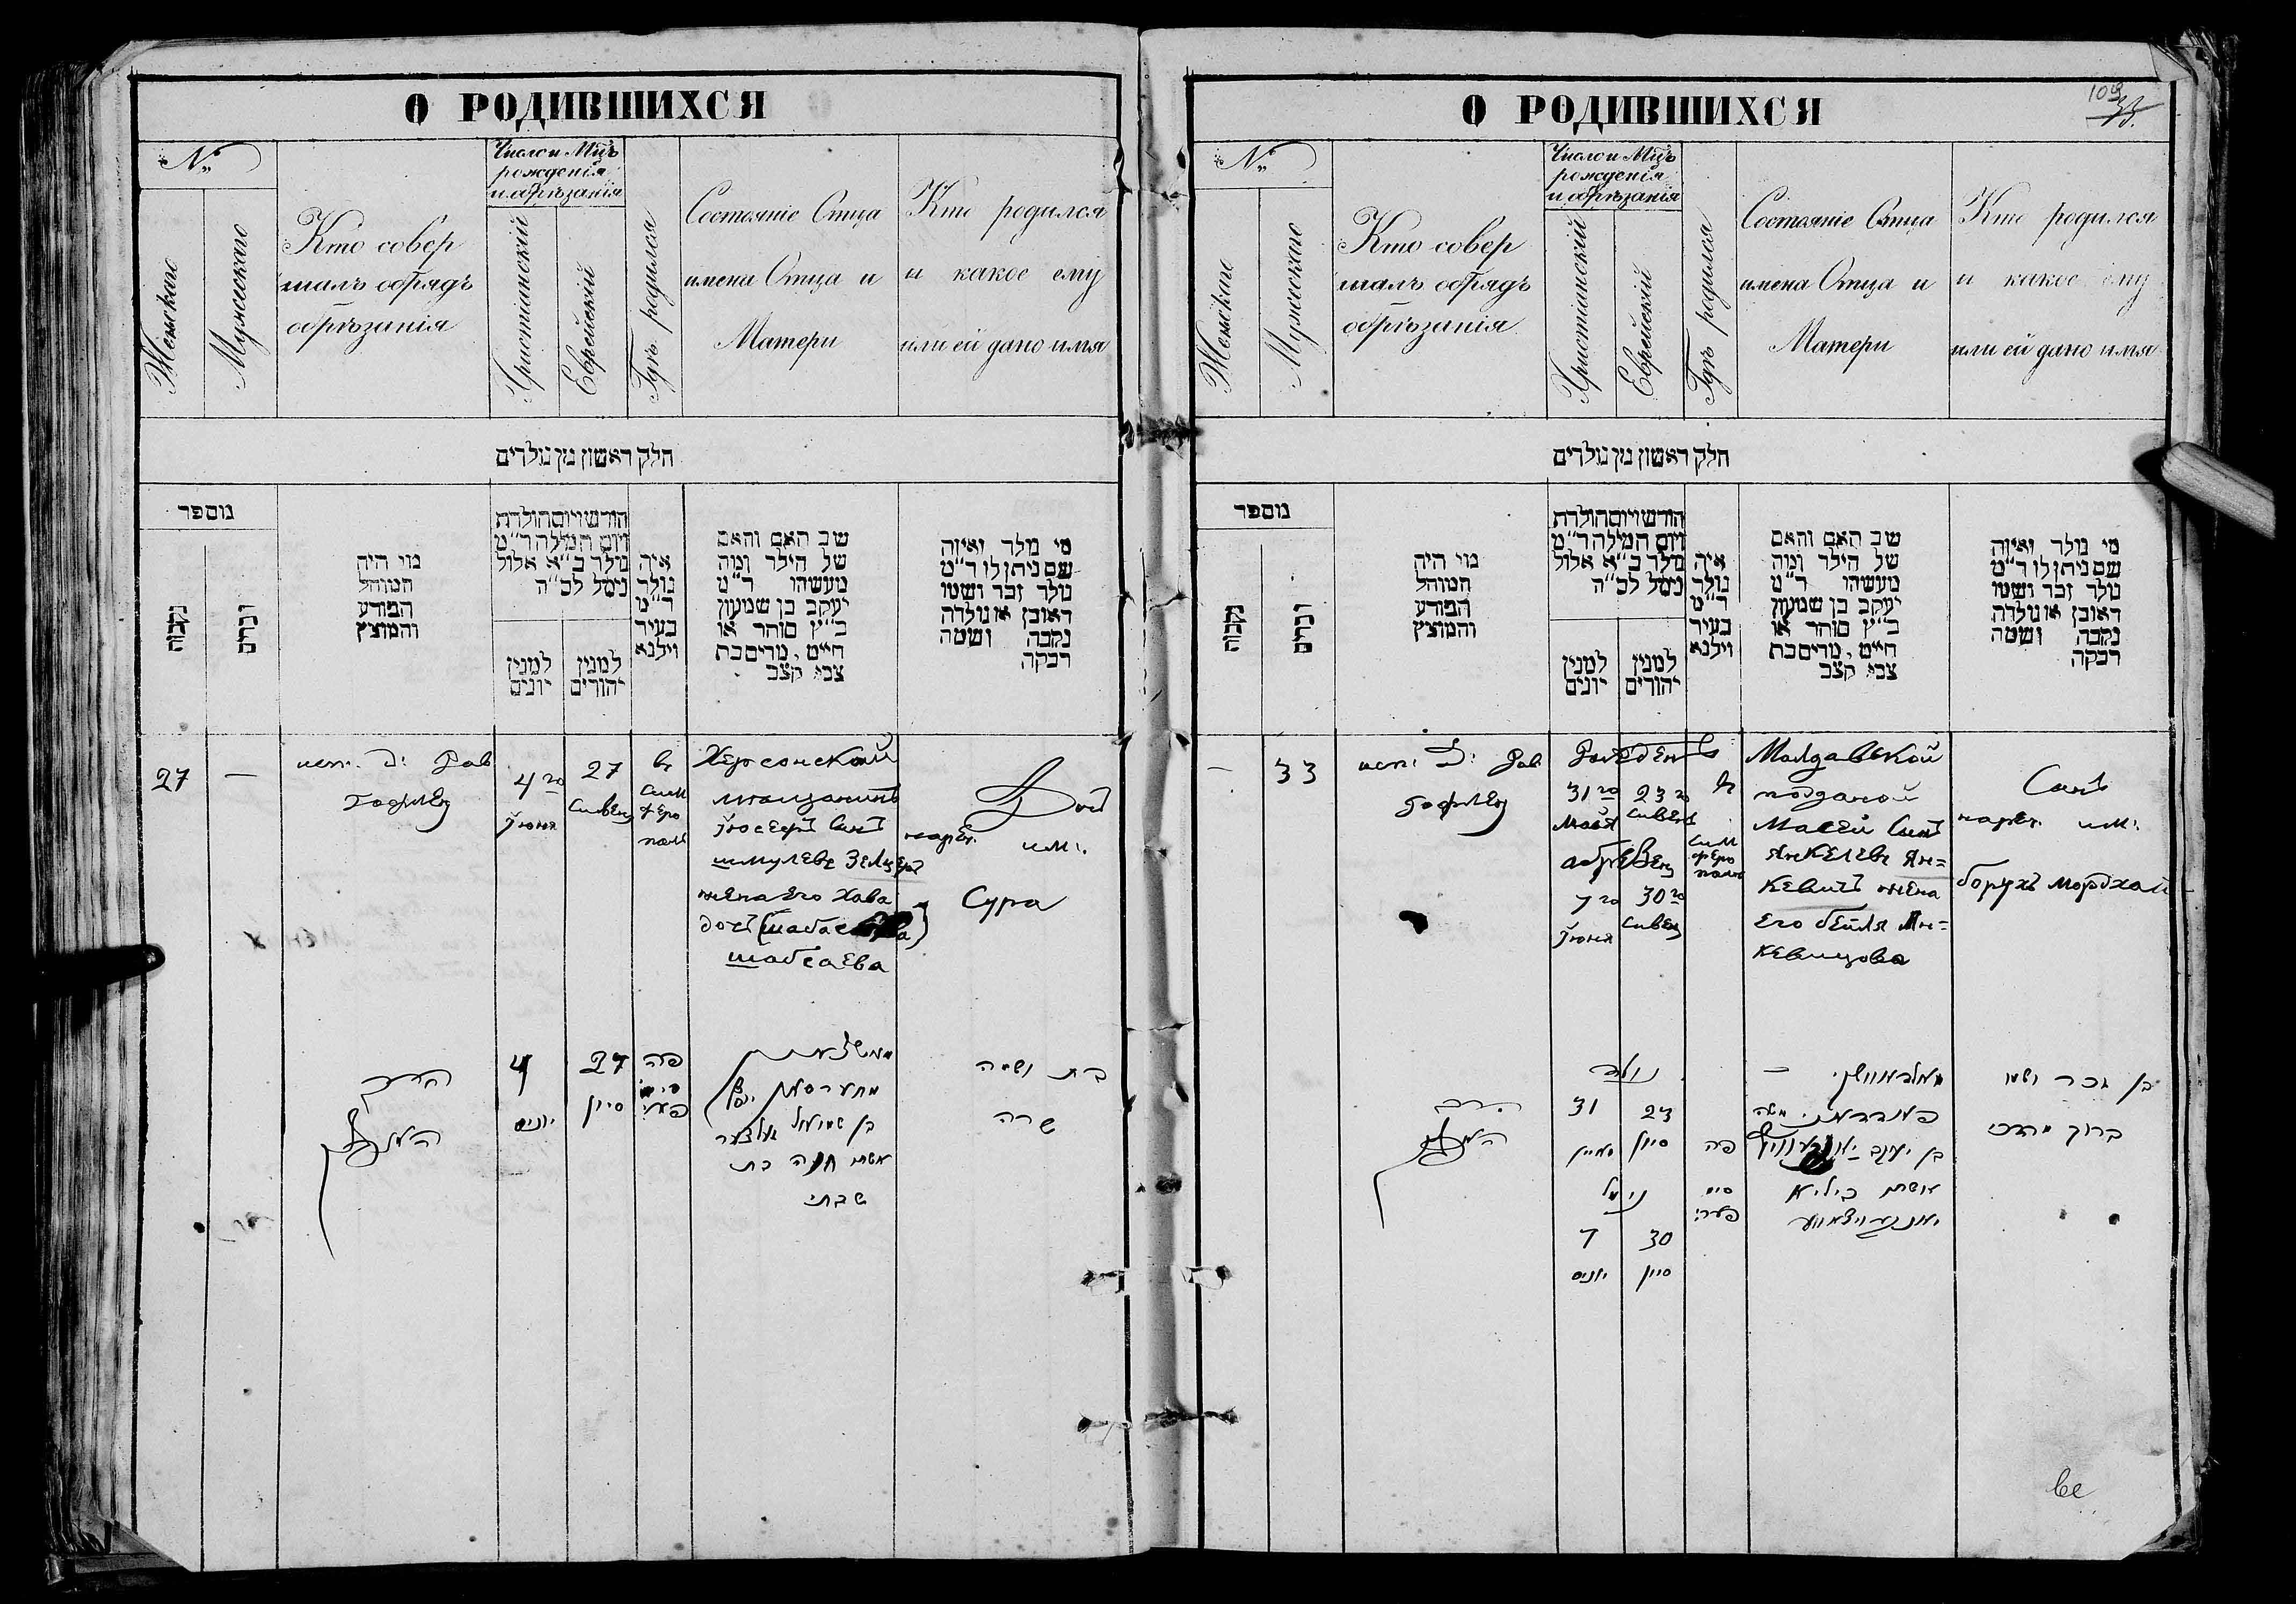 О РОДИВШИХСЯ
№
Женскаго
Мужескаго
Кто совер
шалъ обрядъ
обрѣзанія
Число и Мцъ
рожденія
и обрѣзанія
Христіанскій
Еврейскій
Гдѣ родился
Состояніе Отца
имена Отца и
Матери
Кто родился
и какое ему
или ей дано имя
חלק ראשון מן נולדים
מוספר
נקבות
זכרים
מי היה
המוהל
הפורע
והמוצץ
חודש ויום הולדת
ויום המילה ד"מ
נולד ב"א אלול
נימל לכ"ה
למנין
יונים
למנין
יהודים
איה
נולד
ד"מ
בעיר
וילנא
שב האם והאם
של הילד ומה
מעשהו ד"מ
יעקב בן שמעון
כ"ץ סוחר או
חייט, מרים בת
צבי קצב
מי נולד ואיזה
שם ניתן לו ד"מ
נולד זכר ושמו
ראובן או נולדה
נקבה ושמה
רבקה
27
—
исп. д: Рав
4го
Іюня
27
Сивен
въ
Сим
феро
поль
Херсонской
мѣщанинъ
Іюсефъ Синъ
шмулевъ Зелцеръ
жена его Хава
дочь
шабсаева
Доч
нареч. им:
Сура
4
יוניס
27
סיון
פה
סימ
פערי
בן שמואל זעלצער
אשתו חוה בת
שבתי
בת ושמה
שרה
О РОДИВШИХСЯ
109
№
Женскаго
Мужескаго
Кто совер
шалъ обрядъ
обрѣзанія
Число и Мцъ
рожденія
и обрѣзанія
Христіанскій
Еврейскій
Гдѣ родился
Состояніе Отца
имена Отца и
Матери
Кто родился
и какое ему
или ей дано имя
חלק ראשון מן נולדים
מוספר
נקבות
זכרים
מי היה
המוהל
הפורע
והמוצץ
חודש ויום הולדת
ויום המילה ד"מ
נולד ב"א אלול
נימל לכ"ה
למנין
יונים
למנין
יהודים
איה
נולד
ד"מ
בעיר
וילנא
שב האם והאם
של הילד ומה
מעשהו ד"מ
יעקב בן שמעון
כ"ץ סוחר או
חייט, מרים בת
צבי קצב
מי נולד ואיזה
שם ניתן לו ד"מ
נולד זכר ושמו
ראובן או נולדה
נקבה ושמה
רבקה
—
33
исп: д: Рав.
Рожден
31го
Мая
23го
Сивен
обрезен
7го
Іюня
30го
Сивен
въ
Сим
феро
поль
Молдавской
поданой
Масей Синъ
Янкелевъ Ян=
кевичъ жена
его бейля Ян=
кевицова
Синъ
нареч. им:
борухъ мордхай
נולד
31
מאיי
23
סיון
נימל
7
יוניס
30
סיון
פה
סימ
פערי
משה
בן יעקב
אשתו ביילא
בן זכר ושמו
ברוך מרדכי